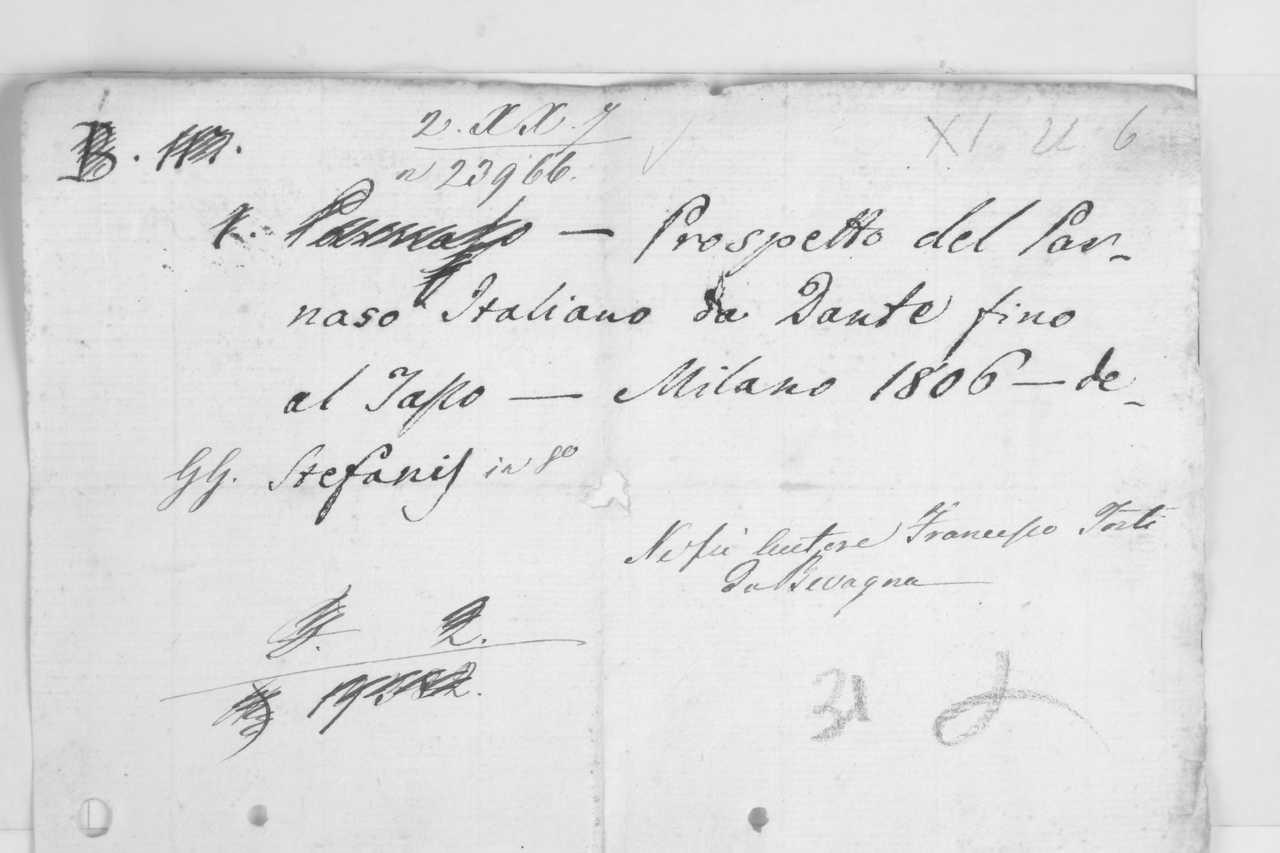 2. XX. 7
n 23966.
XI U 6
Prospetto del Par-
naso Italiano da Dante fino
al Tasso — Milano 1806 — de-
GG. Stefanis in 8º
Ne fu Autore Francesco Torti
da Bevagna
2.
31